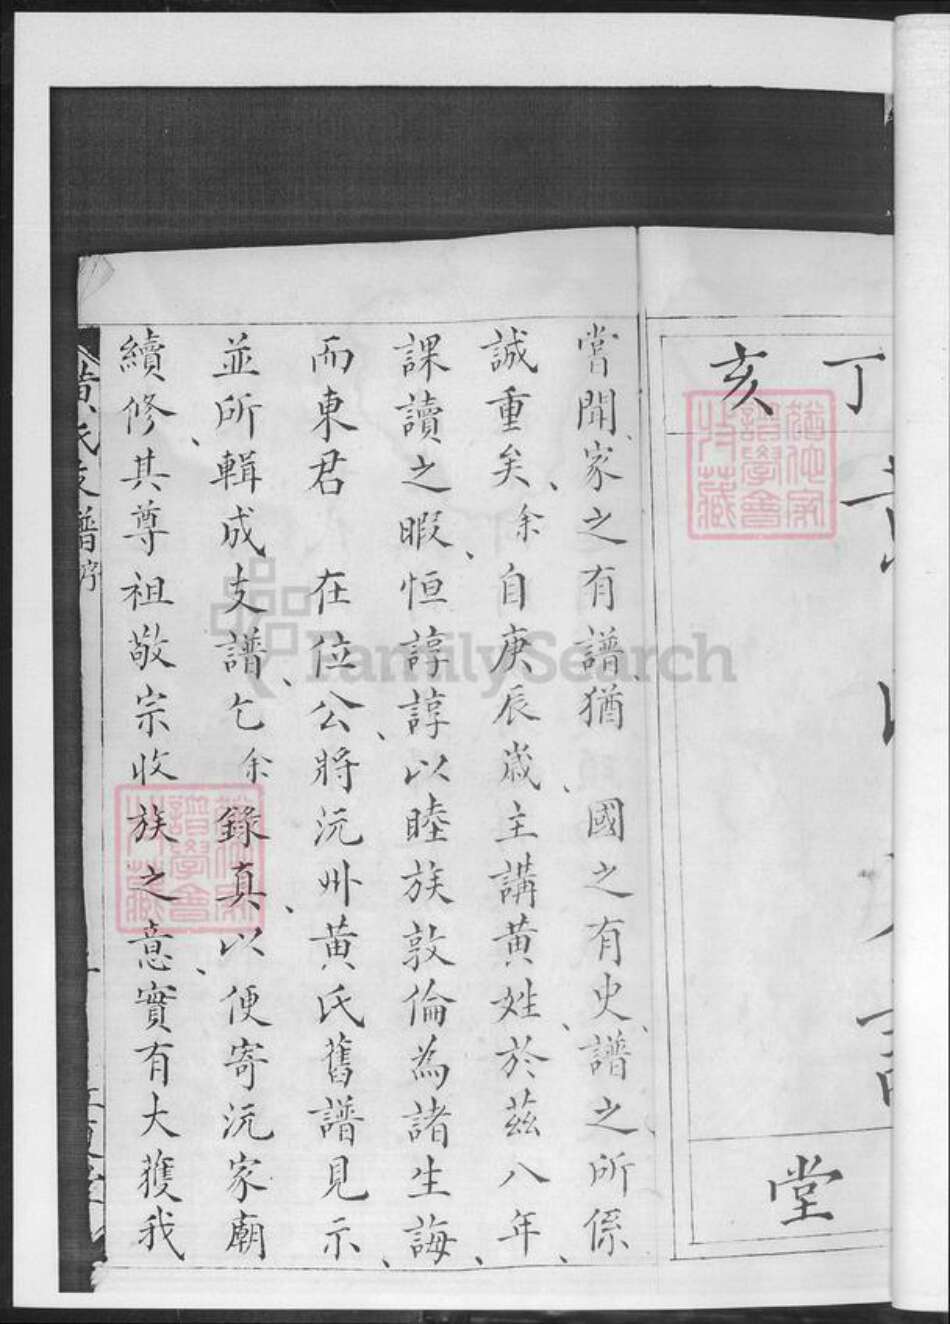 丁
亥
堂
嘗聞家之有譜猶 國之有史譜之所係
誠重矣余自庚辰歲主講黃姓於茲八年
課讀之暇恒諄諄以睦族敦倫為諸生誨
而東君 在位公將沅州黃氏舊譜見示
並所輯成支譜乞余錄真以便寄沅家廟
續修其尊祖敬宗收族之意實有大獲我
黃氏支譜 序
FamilySearch